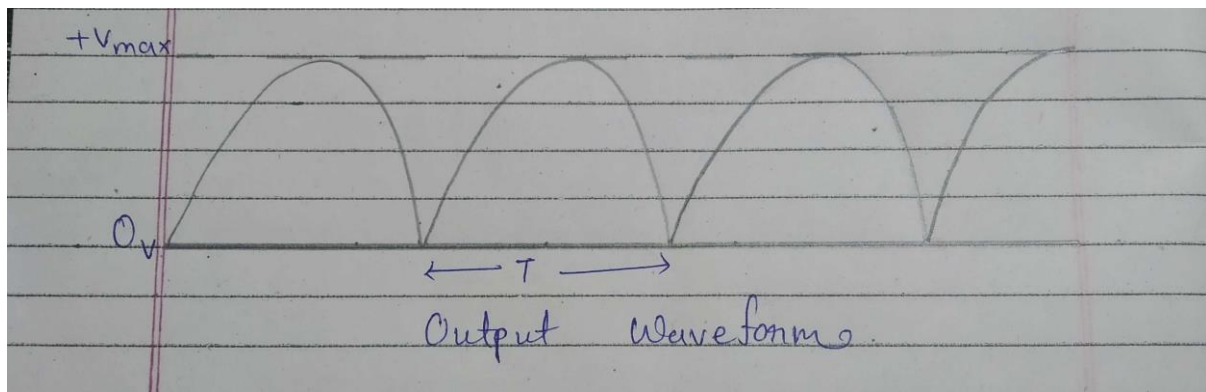 +Vmax
0v
← T →
Output Waveform.